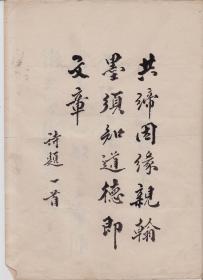 共缔因缘親翰
墨須知道德即
文章
詩題一首